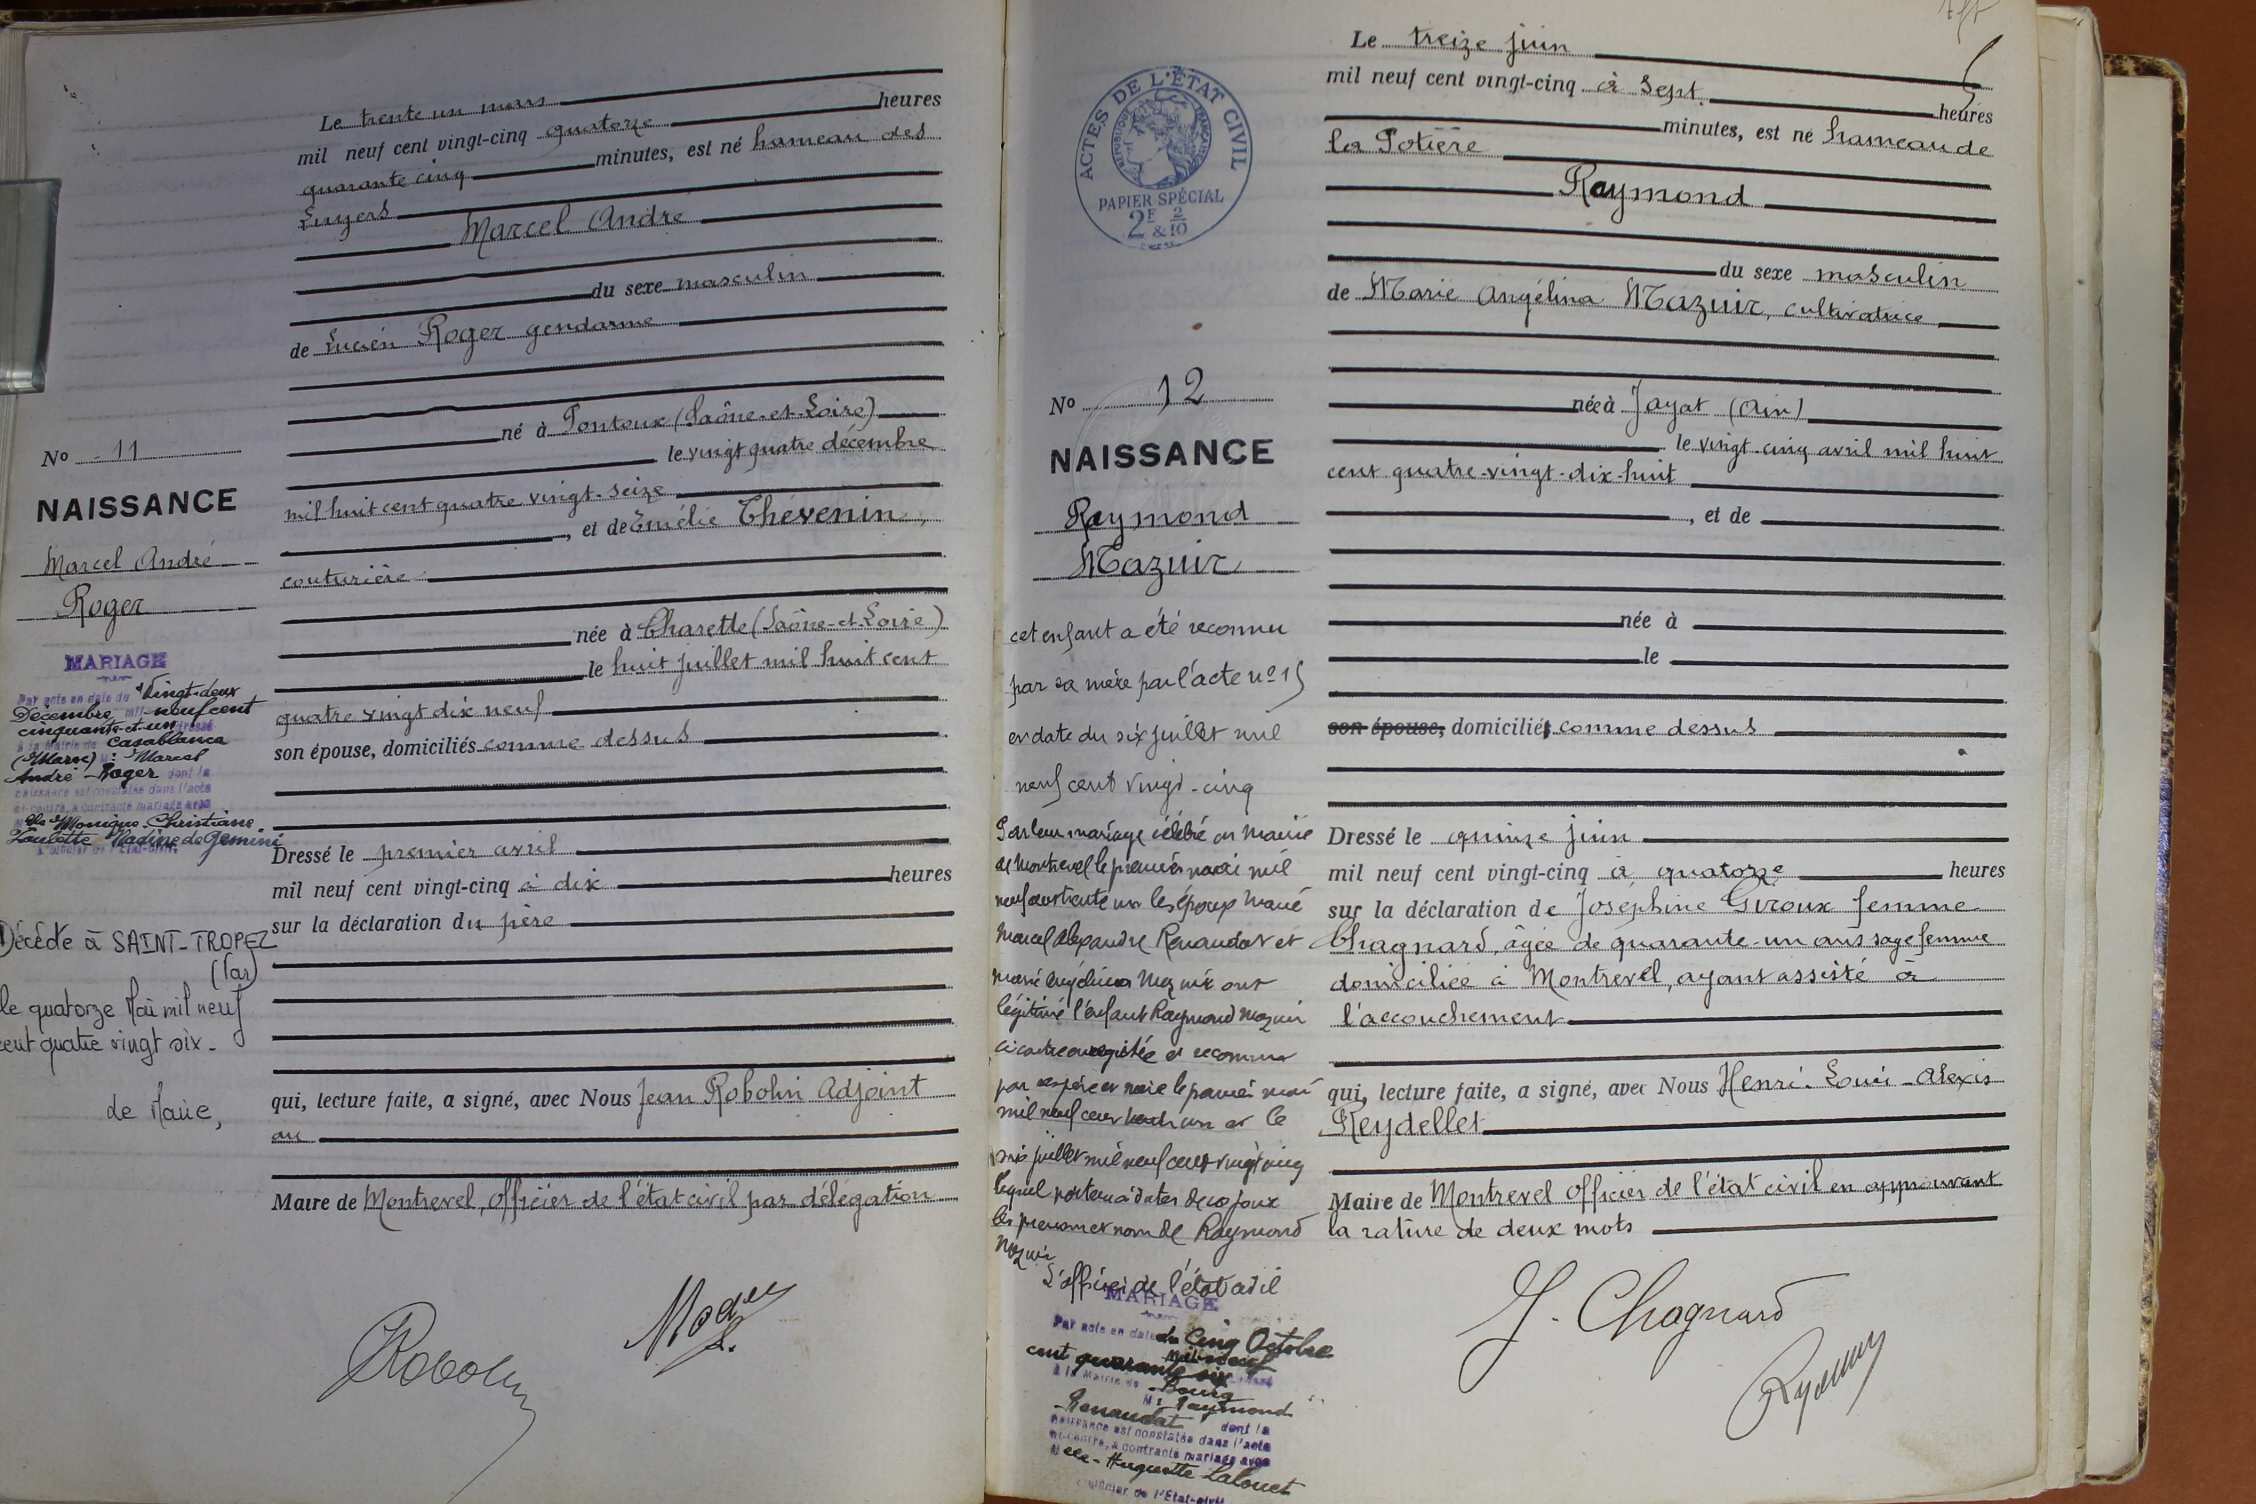 Le trente un mars
mil neuf cent vingt-cinq quatorze heures
quarante cinq minutes, est né hameau des
Luyers
Marcel André
du sexe masculin
de Lucien Roger gendarme
né à Pontoux (Saône-et-Loire)
le vingt quatre décembre
mil huit cent quatre vingt-seize
, et de Emélie Thévenin,
couturière
née à Charette (Saône-et-Loire)
le huit juillet mil huit cent
quatre vingt dix neuf
son épouse, domiciliés comme dessus
Dressé le premier avril
mil neuf cent vingt-cinq à dix heures
sur la déclaration du père
qui, lecture faite, a signé, avec Nous Jean Robolin Adjoint
au
Maire de Montrevel, officier de l'état civil par délégation
Robolin
No 11
NAISSANCE
Marcel André
Roger
MARIAGE
Par acte en date du Vingt-deux
Décembre mil neuf cent
cinquante-et-un dressé
à la Mairie de Casablanca
(Maroc) M: Marcel
André Roger dont la
naissance est constatée dans l'acte
ci-contre, a contracté mariage avec
Melle Monique Christiane
Paulette Nadine de Gemini
L'officier de l'Etat-civil.
Décédé à SAINT-TROPEZ
(Var)
le quatorze Mai mil neuf
cent quatre vingt six.
Le treize juin
mil neuf cent vingt-cinq à sept heures
minutes, est né hameau de
la Potière
Raymond
du sexe masculin
de Marie Angélina Mazuir, cultivatrice
née à Jayat (Ain)
le vingt-cinq avril mil huit
cent quatre-vingt-dix-huit
, et de
née à
le
son épouse, domicilié comme dessus
Dressé le quinze juin
mil neuf cent vingt-cinq à quatorze heures
sur la déclaration de Joséphine Giroux femme
Chagnard, âgée de quarante-un ans sage femme
domiciliée à Montrevel, ayant assisté à
l'accouchement
qui, lecture faite, a signé, avec Nous Henri-Louis-Alexis
Reydellet
Maire de Montrevel officier de l'état civil en approuvant
la rature de deux mots
J. Chagnard
ACTES DE L'ÉTAT CIVIL
RÉPUBLIQUE FRANÇAISE
PAPIER SPÉCIAL
2F & 2/10
No 12
NAISSANCE
Raymond
Mazuir
cet enfant a été reconnu
par sa mère par l'acte no 15
en date du six juillet mil
neuf cent vingt-cinq
Par leur mariage célébré en mairie
de Montrevel le premier mil
neuf cent trente un les époux Marie
Marcel Alexandre Renaudat et
Marie Angélina Mazuir ont
légitimé l'enfant Raymond Mazuir
ci contre enregistré et reconnu
par ses père et mère le premier
mil neuf cent trente un et le
six juillet mil neuf cent vingt cinq
lequel portera à dater de ce jour
les prénom et nom de Raymond
L'officier de l'état civil
MARIAGE
Par acte en date du Cinq Octobre
mil neuf
cent quarante six dressé
à la Mairie de Bourg
M: Raymond
Renaudat dont la
naissance est constatée dans l'acte
ci-contre, a contracté mariage avec
Melle Huguette Lalouet
L'officier de l'Etat-civil